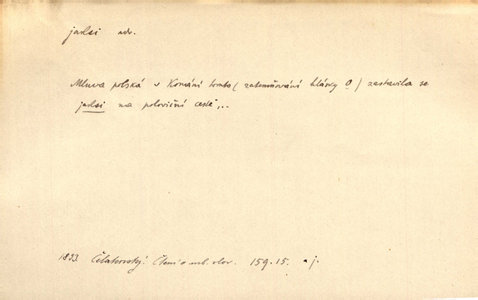 jaksi adv.
Mluva polská v konání tomto (zatemňování hlásky o) zastavila se
jaksi na poloviční cestě,..
1853. Čelakovský: Čtení o srb. slov. 159.15. a j.